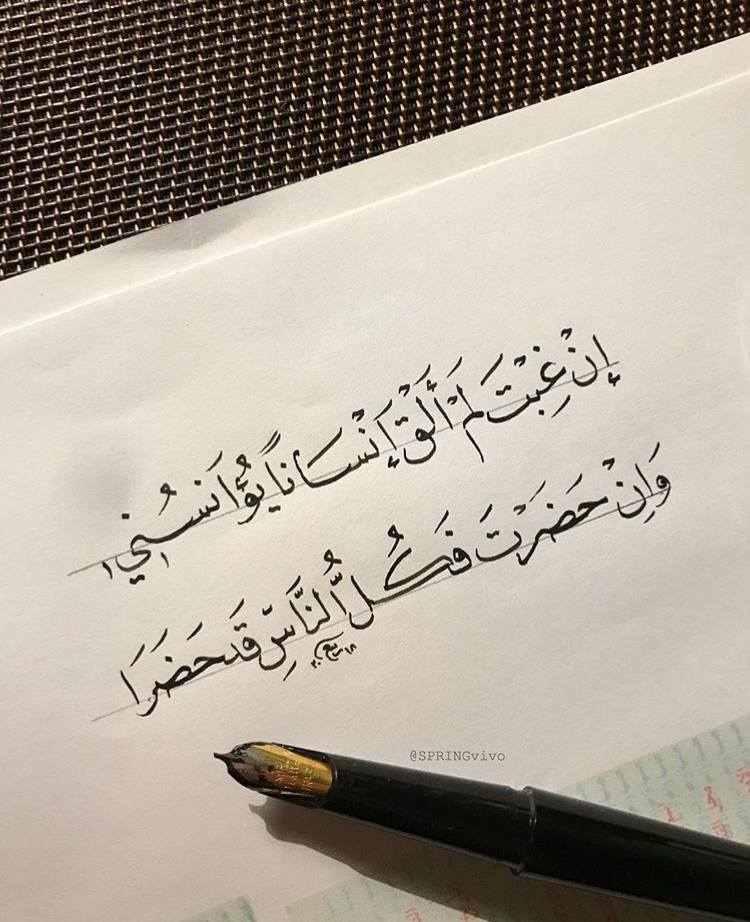 إنْ غِبْتَ لَمْ أَلْقَ إِنْسَاناً يُؤَانسُنِي
وَإِنْ حَضَرْتَ فَكُلُّ النَّاسِ قَد حَضَرَا
@SPRINGvivo